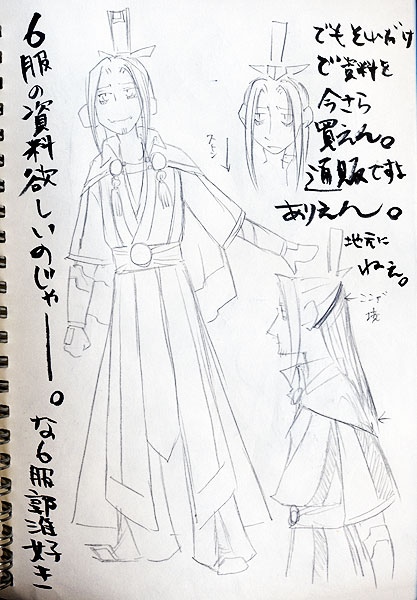 6服の資料欲しいのじゃー。
な6服郭淮好き
でもそれだけ
で資料を
今さら
買えん。
通販ですよ
ありえん。
地元に
ねぇ。
ストン